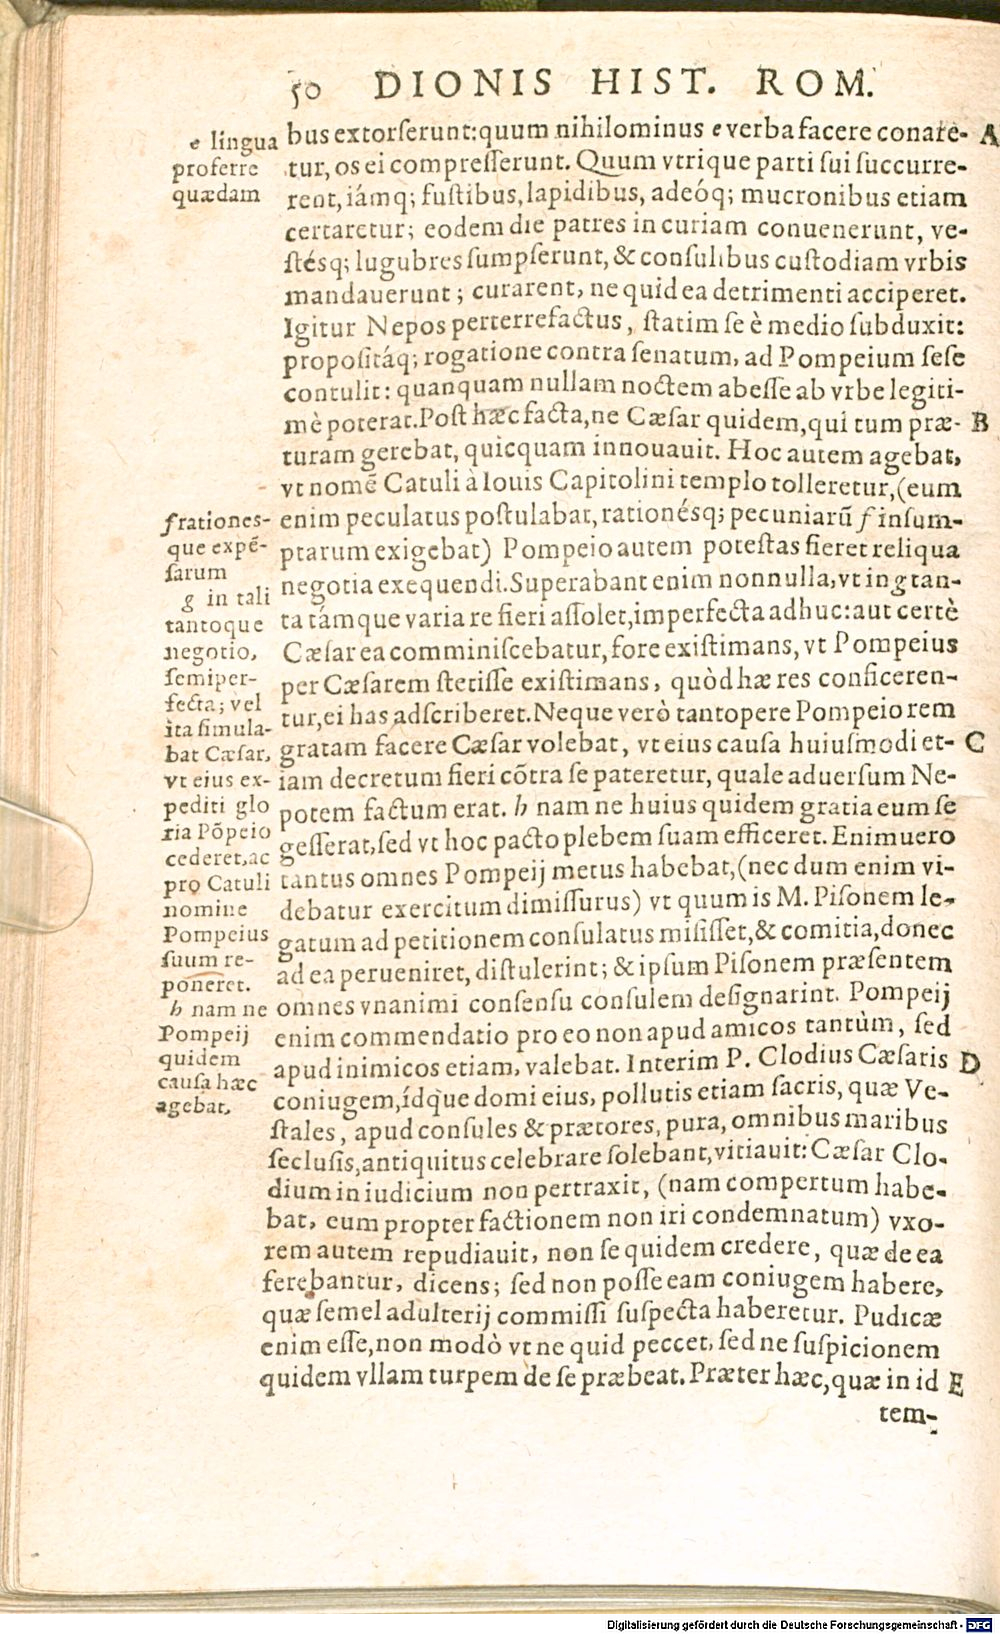 50 DIONIS HIST. ROM.
bus extorſerunt: quum nihilominus e verba facere conare- A
tur, os ei compreſſerunt. Quum vtrique parti ſui ſuccurre-
rent, iámq; fuſtibus, lapidibus, adeóq; mucronibus etiam
certaretur; eodem die patres in curiam conuenerunt, ve-
ſtésq; lugubres ſumpſerunt, & conſulibus cuſtodiam vrbis
mandauerunt; curarent, ne quid ea detrimenti acciperet.
Igitur Nepos perterrefactus, ſtatim ſe è medio ſubduxit:
propoſitáq; rogatione contra ſenatum, ad Pompeium ſeſe
contulit: quanquam nullam noctem abeſſe ab vrbe legiti-
mè poterat. Poſt hæc facta, ne Cæſar quidem, qui tum præ- B
turam gerebat, quicquam innouauit. Hoc autem agebat,
vt nomē Catuli à Iouis Capitolini templo tolleretur, (eum
enim peculatus poſtulabat, rationésq; pecuniarū f inſum-
ptarum exigebat) Pompeio autem poteſtas fieret reliqua
negotia exequendi. Superabant enim nonnulla, vt in g tan-
ta támque varia re fieri aſſolet, imperfecta adhuc: aut certè
Cæſar ea comminiſcebatur, fore exiſtimans, vt Pompeius
per Cæſarem ſtetiſſe exiſtimans, quòd hæ res conficeren-
tur, ei has adſcriberet. Neque verò tantopere Pompeio rem
gratam facere Cæſar volebat, vt eius cauſa huiuſmodi et- C
iam decretum fieri cōtra ſe pateretur, quale aduerſum Ne-
potem factum erat. h nam ne huius quidem gratia eum ſe
geſſerat, ſed vt hoc pacto plebem ſuam efficeret. Enimuero
tantus omnes Pompeij metus habebat, (nec dum enim vi-
debatur exercitum dimiſſurus) vt quum is M. Piſonem le-
gatum ad petitionem conſulatus miſiſſet, & comitia, donec
ad ea perueniret, diſtulerint; & ipſum Piſonem præſentem
omnes vnanimi conſenſu conſulem deſignarint. Pompeij
enim commendatio pro eo non apud amicos tantùm, ſed
apud inimicos etiam, valebat. Interim P. Clodius Cæſaris D
coniugem, ídque domi eius, pollutis etiam ſacris, quæ Ve-
ſtales, apud conſules & prætores, pura, omnibus maribus
ſecluſis, antiquitus celebrare ſolebant, vitiauit: Cæſar Clo-
dium in iudicium non pertraxit, (nam compertum habe-
bat, eum propter factionem non iri condemnatum) vxo-
rem autem repudiauit, non ſe quidem credere, quæ de ea
ferebantur, dicens; ſed non poſſe eam coniugem habere,
quæ ſemel adulterij commiſſi ſuſpecta haberetur. Pudicæ
enim eſſe, non modò vt ne quid peccet, ſed ne ſuſpicionem
quidem vllam turpem de ſe præbeat. Præter hæc, quæ in id E
tem-
e lingua
proferre
quædam
f rationes-
que expē-
ſarum
g in tali
tantoque
negotio,
ſemiper-
fecta; vel
ita ſimula-
bat Cæſar,
vt eius ex-
pediti glo
ria Pōpeio
cederet, ac
pro Catuli
nomine
Pompeius
ſuum re-
poneret.
h nam ne
Pompeij
quidem
cauſa hæc
agebat.
Digitalisierung gefördert durch die Deutsche Forschungsgemeinschaft - DFG